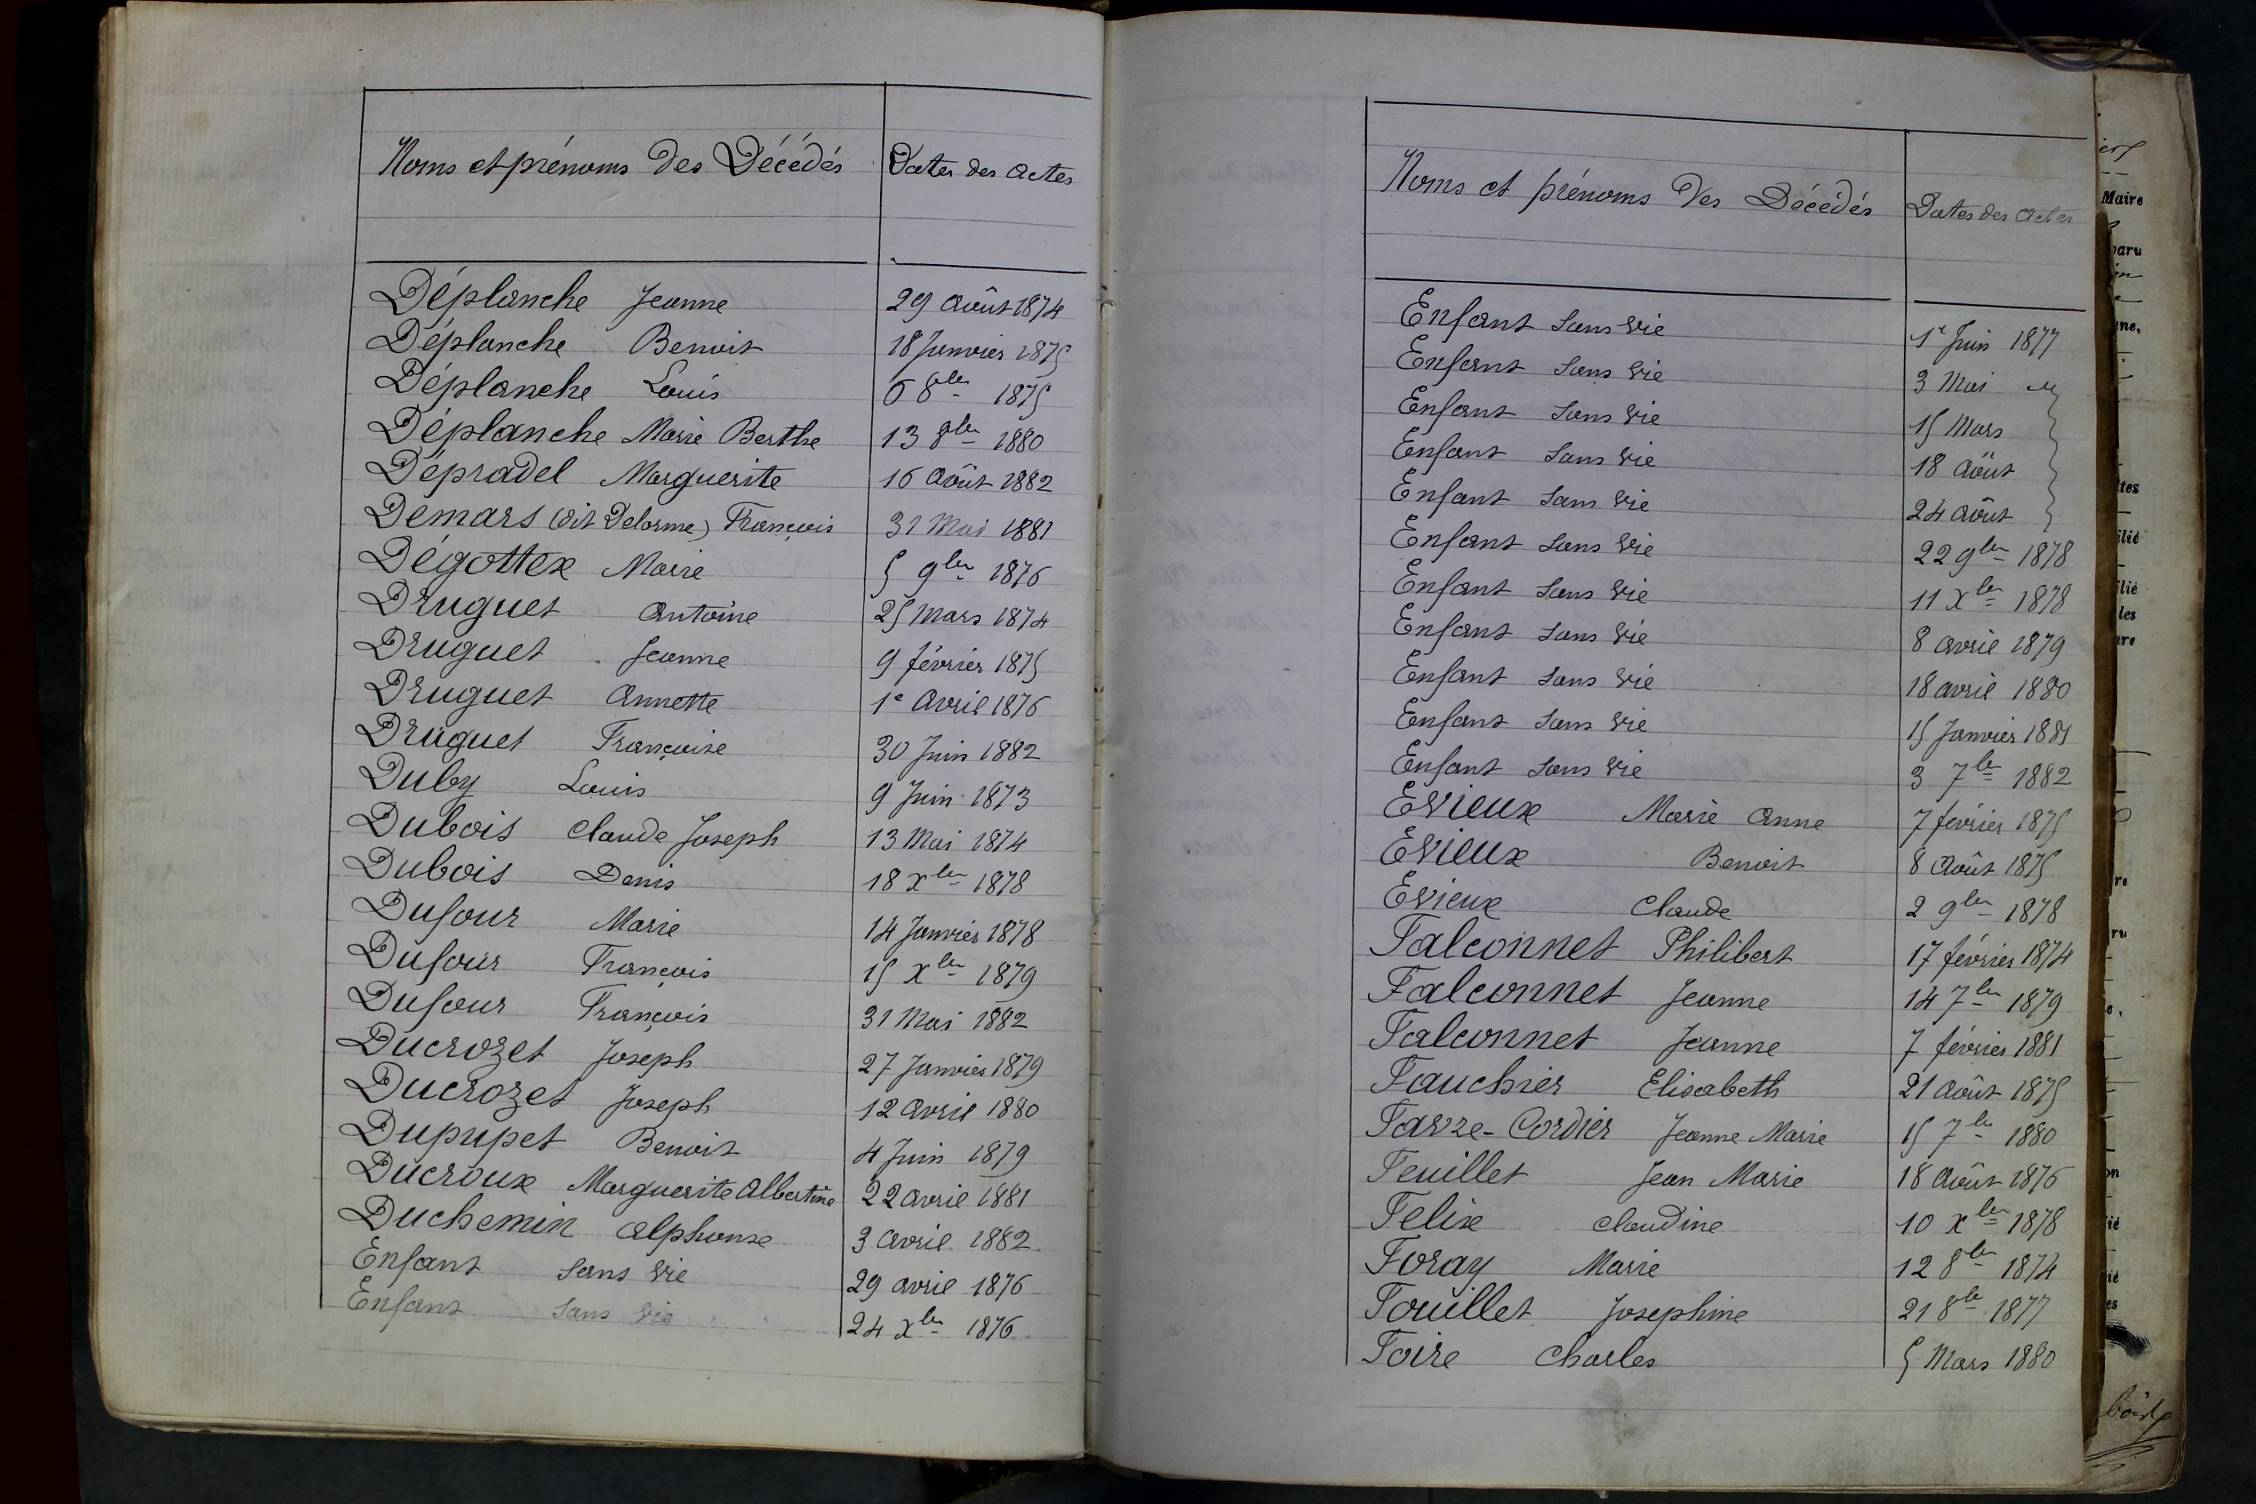 Noms et prénoms des Décédés Dates des actes
Déplanche Jeanne 29 Août 1874
Déplanche Benoit 18 Janvier 1875
Déplanche Louis 6 8bre 1875
Déplanche Marie Berthe 13 8bre 1880
Dépradel Marguerite 16 Août 1882
Demars (dit Delorme) François 31 Mai 1881
Dégottex Marie 5 9bre 1876
Druguet Antoine 25 Mars 1874
Druguet Jeanne 9 février 1875
Druguet Annette 1e Avril 1876
Druguet Françoise 30 Juin 1882
Duby Louis 9 Juin 1873
Dubois Claude Joseph 13 Mai 1874
Dubois Denis 18 xbre 1878
Dufour Marie 14 Janvier 1878
Dufour François 15 xbre 1879
Dufour François 31 Mai 1882
Ducrozet Joseph 27 Janvier 1879
Ducrozet Joseph 12 Avril 1880
Dupupet Benoit 4 Juin 1879
Ducroux Marguerite Albertine 22 avril 1881
Duchemin Alphonse 3 avril 1882
Enfant sans vie 29 avril 1876
Enfant sans vie 24 xbre 1876
Noms et prénoms des Décédés Dates des actes
Enfant sans vie 1r Juin 1877
Enfant sans vie 3 Mai
Enfant sans vie 15 Mars
Enfant sans vie 18 Août
Enfant sans vie 24 Août
Enfant sans vie 22 9bre 1878
Enfant sans vie 11 xbre 1878
Enfant sans vie 8 avril 1879
Enfant sans vie 18 avril 1880
Enfant sans vie 15 Janvier 1881
Enfant sans vie 3 7bre 1882
Evieux Marie Anne 7 février 1875
Evieux Benoit 8 Août 1875
Evieux Claude 2 9bre 1878
Falconnet Philibert 17 février 1874
Falconnet Jeanne 14 7bre 1879
Falconnet Jeanne 7 février 1881
Fauchier Elisabeth 21 Août 1875
Favre-Cordier Jeanne Marie 15 7bre 1880
Feuillet Jean Marie 18 Août 1876
Felix Claudine 10 xbre 1878
Foray Marie 12 8bre 1874
Fouillet Josephine 21 8bre 1877
Foire Charles 5 Mars 1880
Maire